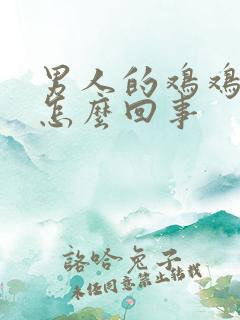 男人的鸡鸡
怎麽回事
詻哈兔子
未任同意禁止转载